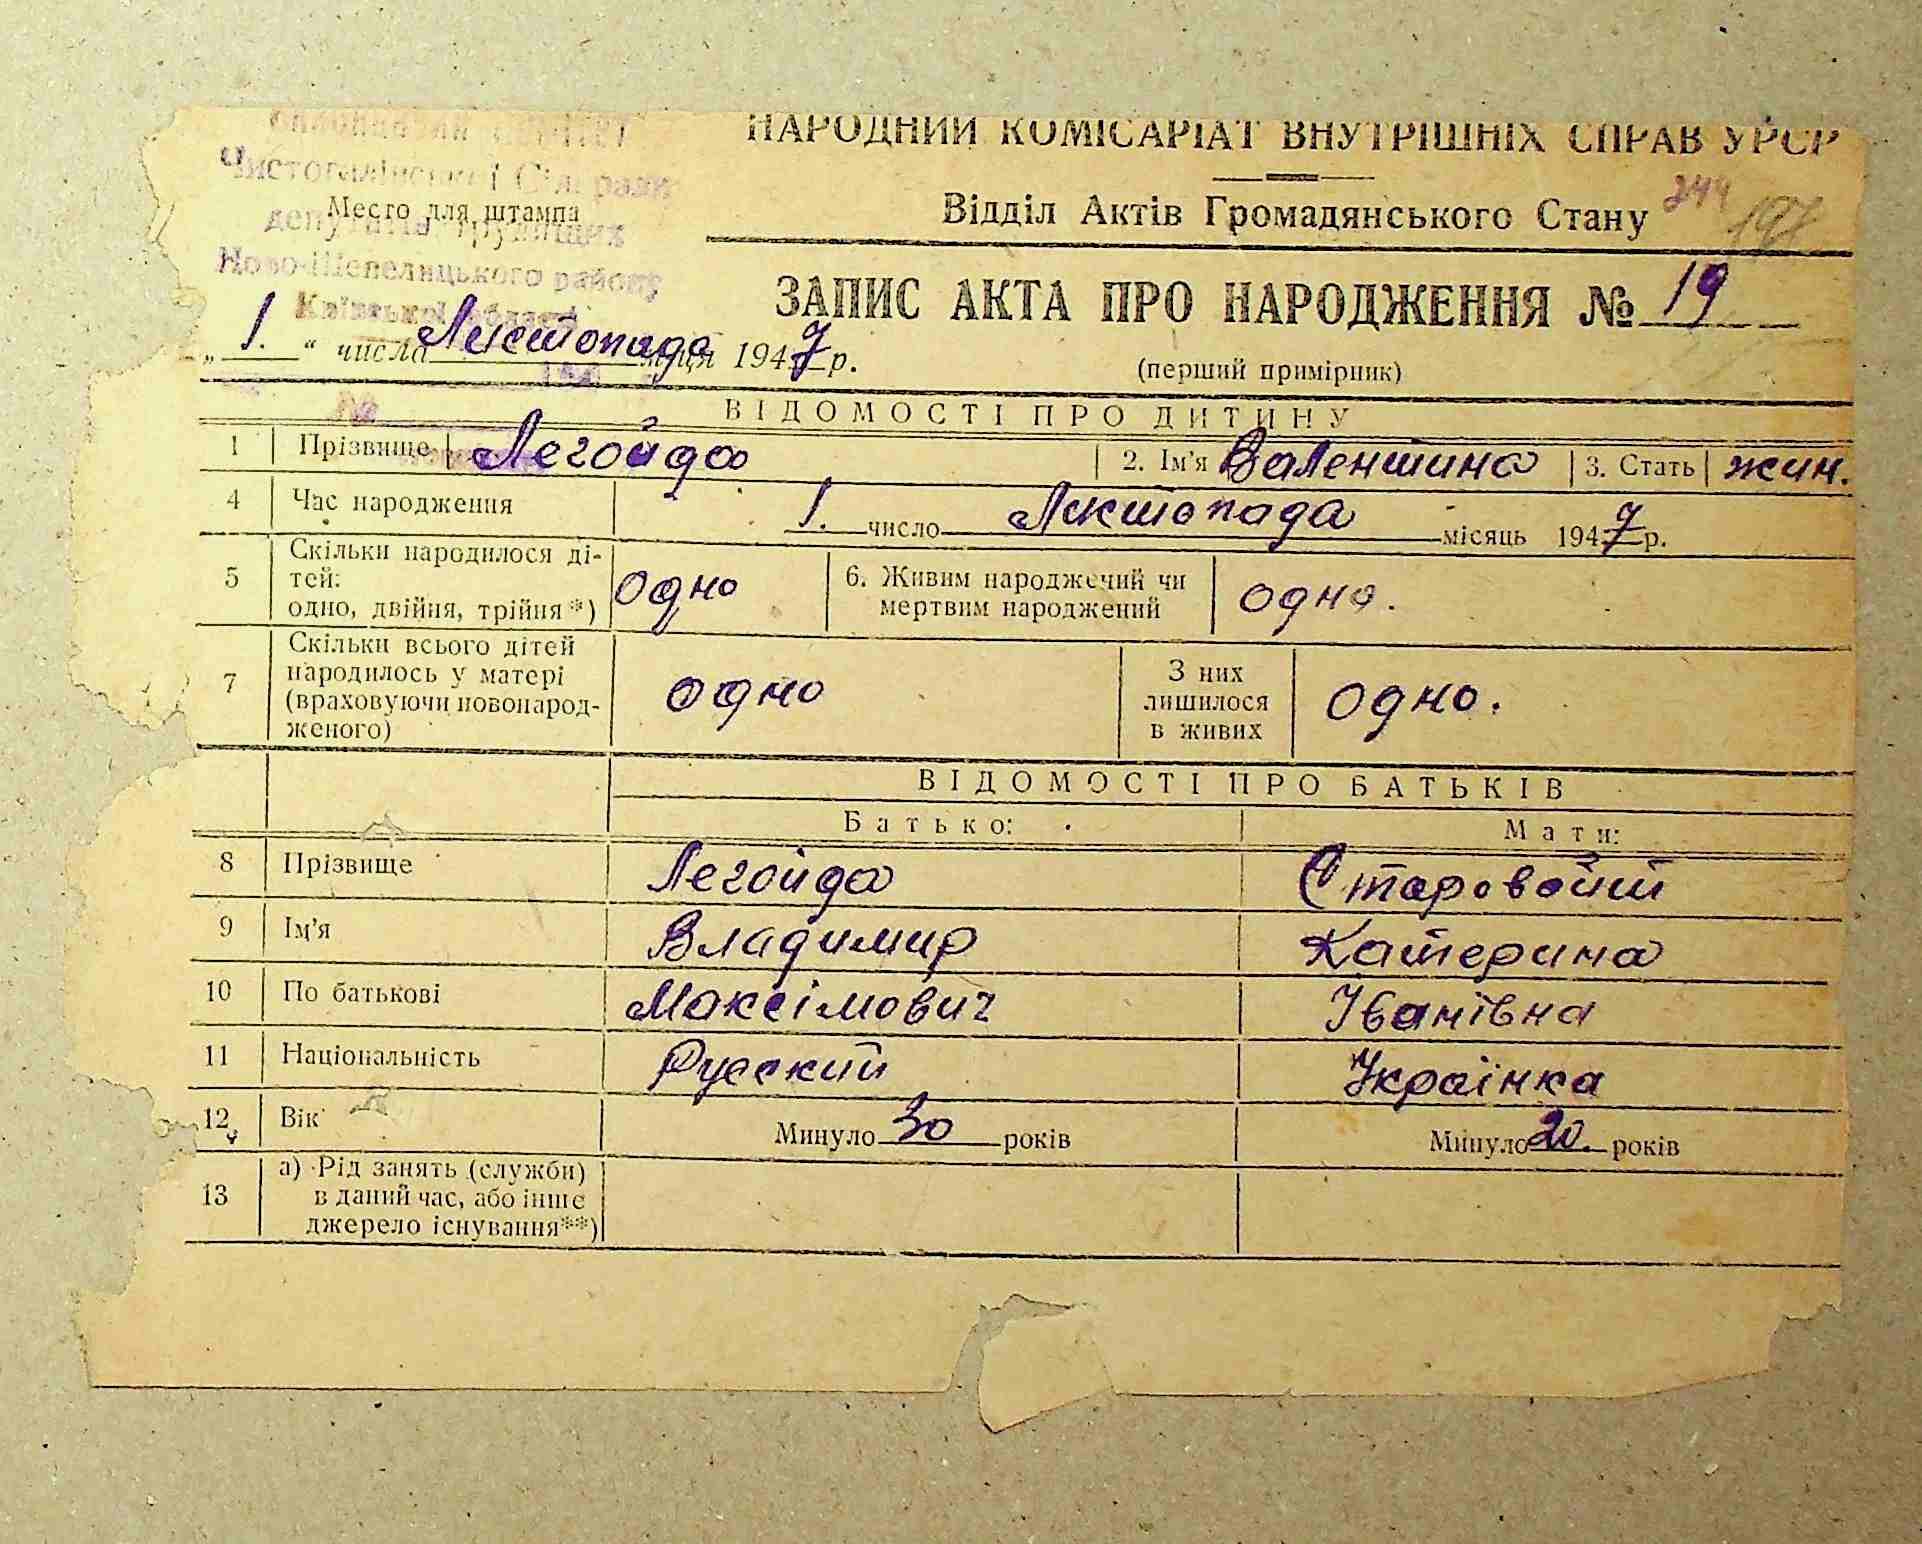 НАРОДНИЙ КОМІСАРІАТ ВНУТРІШНІХ СПРАВ УРСР
Відділ Актів Громадянського Стану
244
197
Чистогалівської Сільради
Место для штампа
депутатів трудящих
Ново-Шепелицького району
Київської області
ЗАПИС АКТА ПРО НАРОДЖЕННЯ № 19
„ 1. “ числа Листопада місяця 1947 р.
(перший примірник)
ВІДОМОСТІ ПРО ДИТИНУ
1 Прізвище Легойда 2. Ім'я Валентина 3. Стать жин.
4 Час народження 1. число Листопада місяць 1947 р.
5 Скільки народилося ді-
тей:
одно, двійня, трійня*) одно 6. Живим народжений чи
мертвим народжений одно.
7 Скільки всього дітей
народилось у матері
(враховуючи новонарод-
женого) одно З них
лишилося
в живих одно.
ВІДОМОСТІ ПРО БАТЬКІВ
Батько: Мати:
8 Прізвище Легойда Старовойт
9 Ім'я Владимир Катерина
10 По батькові Максімович Іванівна
11 Національність Русский Украінка
12 Вік Минуло 30 років Минуло 20. років
13 а) Рід занять (служби)
в даний час, або інше
джерело існування**)